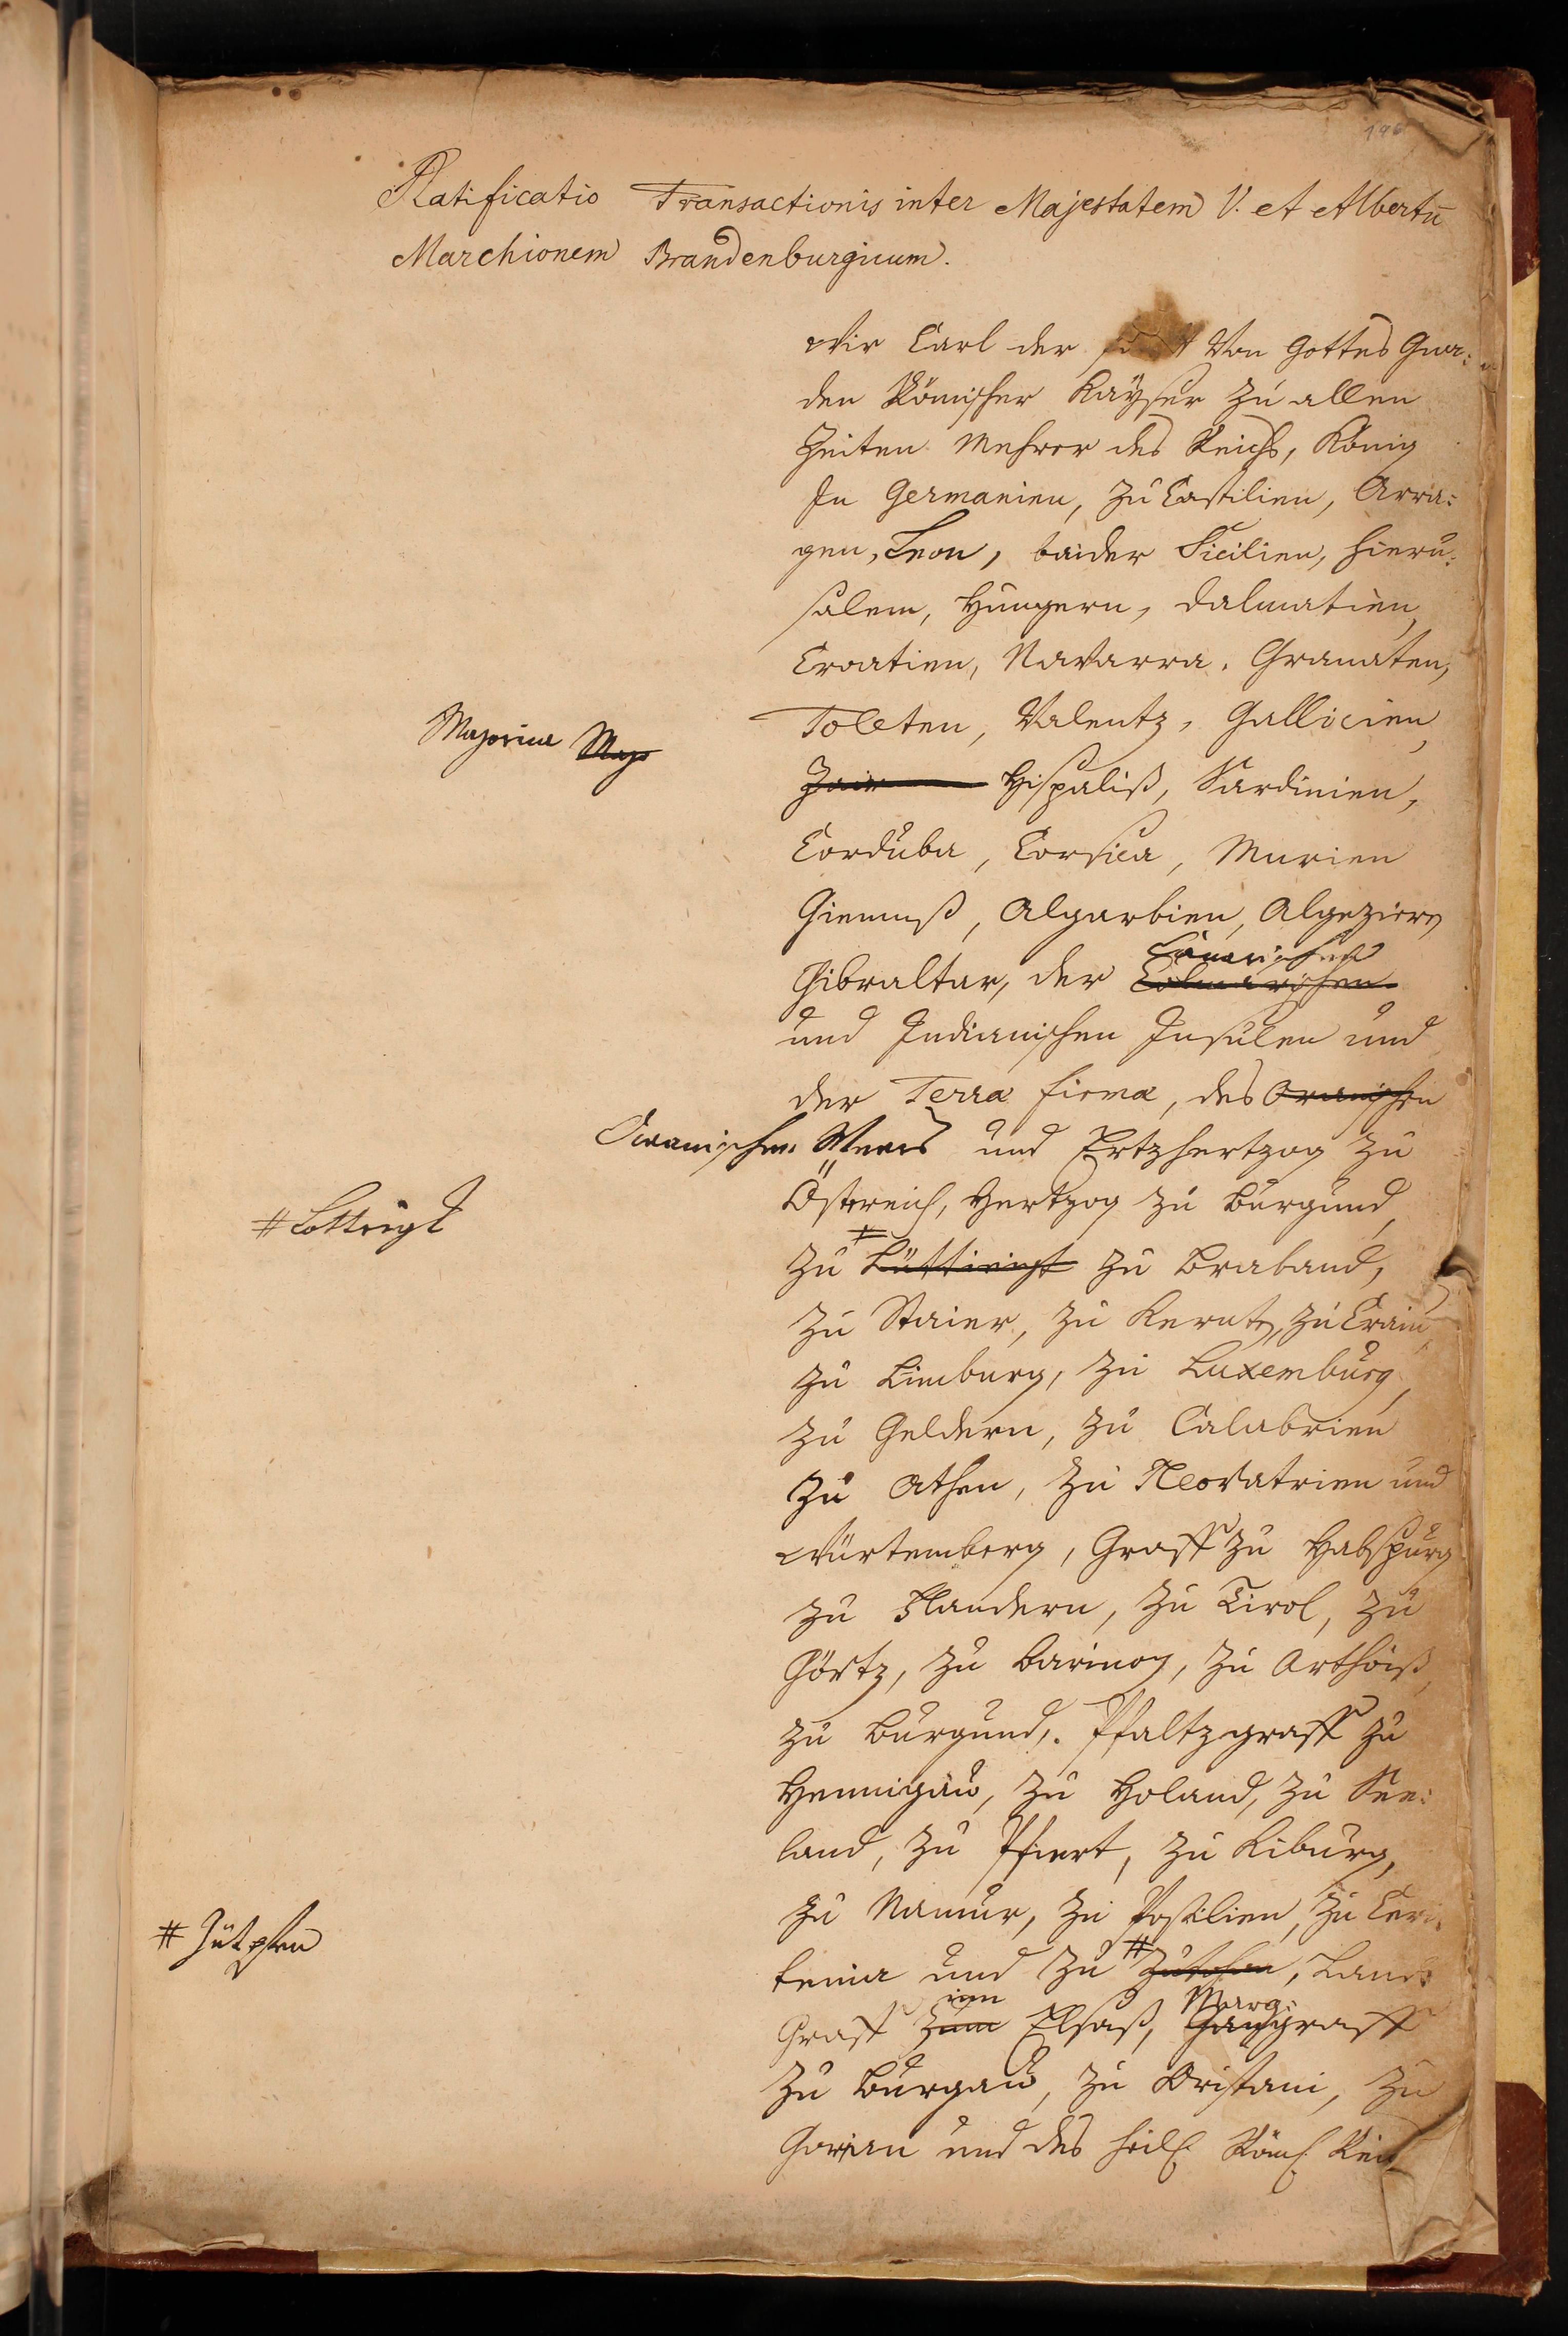 196
Ratificatio Transactionis inter Majestatem V. et Albertū
Marchionem Brandenburgicum.
Wir Carl der Von Gottes Gna:
den Römischer Kaÿser zu allen
Zeiten Mehrer des Reichs, König
In Germanien, zu Castilien, Arra:
gen, Leon, baider Sicilien, Hieru:
salem, Hungern, Dalmatien,
Croatien, Navarra, Granaten,
Toleten, Valentz, Gallicien,
Majorica Majo
Zair Hispaliß, Sardinien,
Corduba, Corsica, Murien
Giennß, Algarbien, Algeziern
Canarischen
Gibraltar, der Colmarischen
und Indianischen Insulen und
der Terra firma, des Oranischen
Oceanischen Meers und Ertzhertzog zu
Österreich, Hertzog zu Burgund,
# Lottrigt
zu # Lüttringt zu Braband,
zu Staier, zu Kernt, zu Crain,
zu Limburg, zu Luxemburg,
zu Geldern, zu Calabrien
zu Athen, zu Neovatrien und
Würtemberg, Graff zu Habspurg
zu Flandern, zu Tirol, zu
Görtz, zu Barinoy, zu Arthoiß,
zu Burgund, Pfaltzgraff zu
Hennigäu, zu Holand, zu See:
land, zu Pfiert, zu Kiburg,
zu Namur, zu Rosilien, zu Ceri:
# Zütpfen
tenia und zu # Zutphen, Land:
im Marg:
Graff zum Elsaß, Gaugraff
zu Burgau, zu Oristani, zu
Gorian und des Heil. Röm. Reich